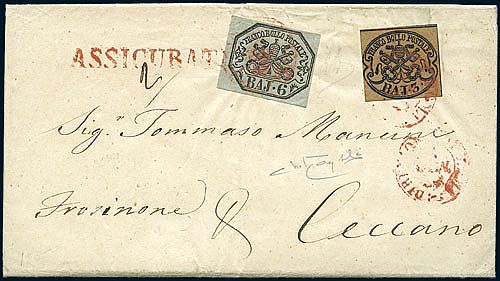 ASSICURAT
FRANCO BOLLO POSTALE
BAJ·6
FRANCO BOLLO POSTALE
BAJ·3
Sig.r Tommaso Mancini
Frosinone & Ceccano